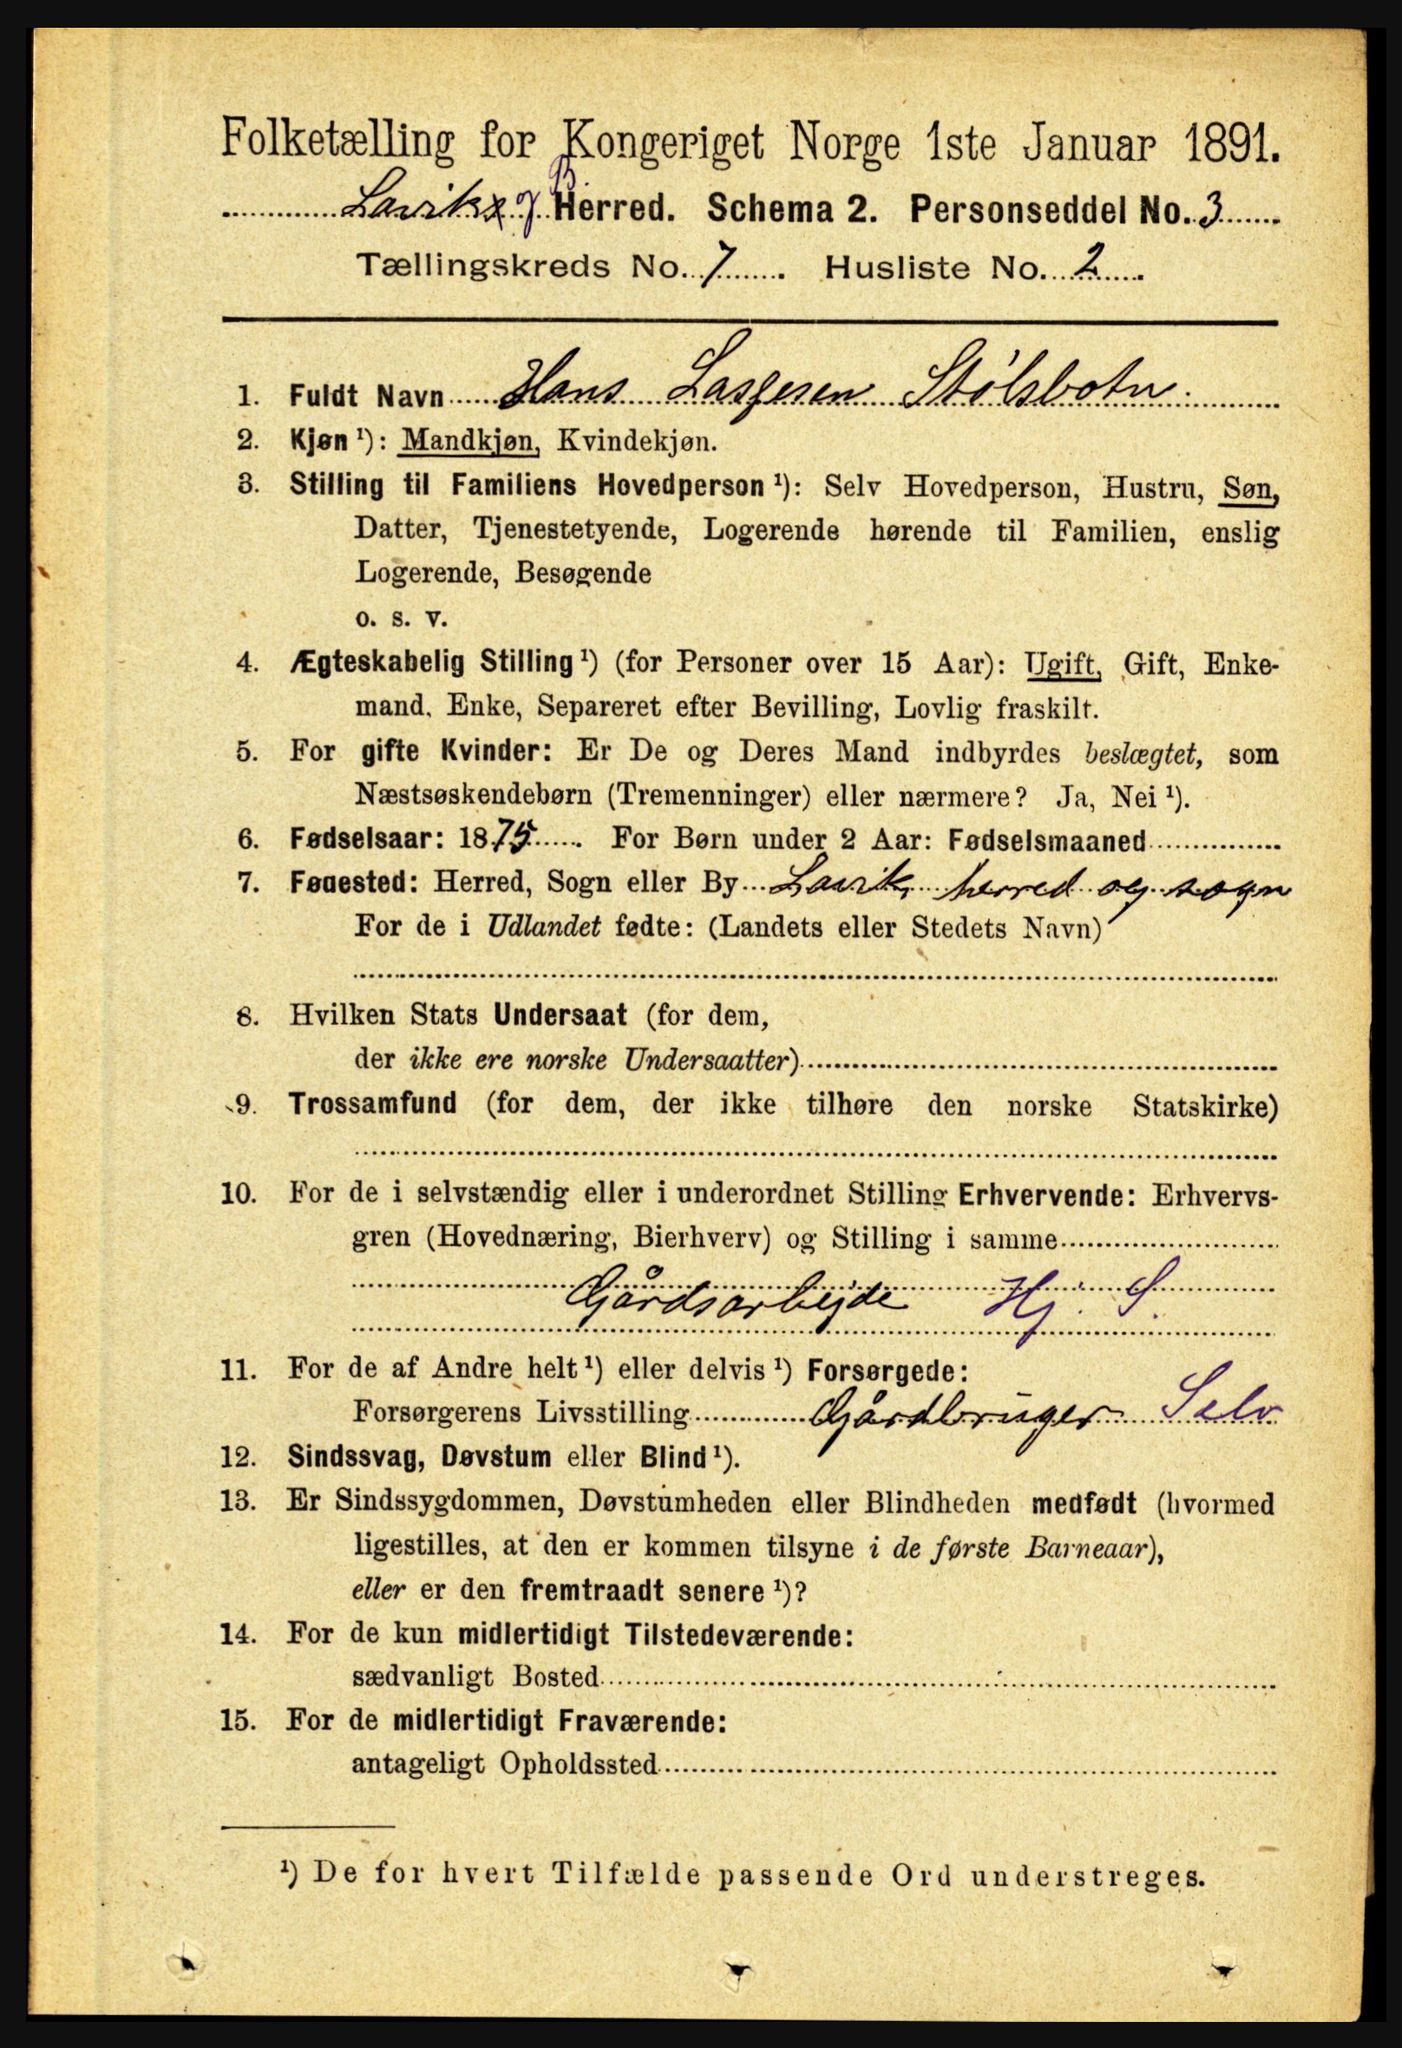 Folketælling for Kongeriget Norge 1ste Januar 1891.
Lavik og B Herred. Schema 2. Personseddel No. 3
Tællingskreds No. 7. Husliste No. 2.
1. Fuldt Navn Hans Lassesen Stølsbotn
2. Kjøn ¹): Mandkjøn, Kvindekjøn.
3. Stilling til Familiens Hovedperson ¹): Selv Hovedperson, Hustru, Søn,
Datter, Tjenestetyende, Logerende hørende til Familien, enslig
Logerende, Besøgende
o. s. v.
4. Ægteskabelig Stilling ¹) (for Personer over 15 Aar): Ugift, Gift, Enke-
mand, Enke, Separeret efter Bevilling, Lovlig fraskilt.
5. For gifte Kvinder: Er De og Deres Mand indbyrdes beslægtet, som
Næstsøskendebørn (Tremenninger) eller nærmere? Ja, Nei ¹).
6. Fødselsaar: 1875. For Børn under 2 Aar: Fødselsmaaned
7. Fødested: Herred, Sogn eller By Lavik, herred og sogn
For de i Udlandet fødte: (Landets eller Stedets Navn)
8. Hvilken Stats Undersaat (for dem,
der ikke ere norske Undersaatter)
9. Trossamfund (for dem, der ikke tilhøre den norske Statskirke)
10. For de i selvstændig eller i underordnet Stilling Erhvervende: Erhvervs-
gren (Hovednæring, Bierhverv) og Stilling i samme
Gårdsarbejde Hj. S.
11. For de af Andre helt ¹) eller delvis ¹) Forsørgede:
Forsørgerens Livsstilling Gårdbruger Selv
12. Sindssvag, Døvstum eller Blind ¹).
13. Er Sindssygdommen, Døvstumheden eller Blindheden medfødt (hvormed
ligestilles, at den er kommen tilsyne i de første Barneaar),
eller er den fremtraadt senere ¹)?
14. For de kun midlertidigt Tilstedeværende:
sædvanligt Bosted
15. For de midlertidigt Fraværende:
antageligt Opholdssted
¹) De for hvert Tilfælde passende Ord understreges.